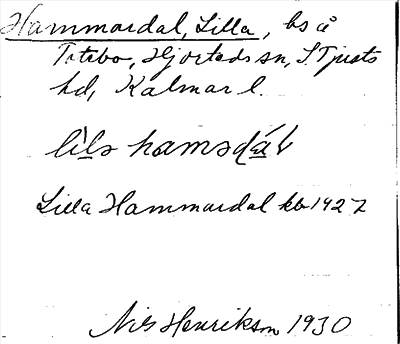 Hammardal, Lilla, bs å
Totebo, Hjorteds sn, S. Tjusts
hd, Kalmar l.
lìls hamsdáḷ
Lilla Hammardal kb 1927
Nils Henrikson 1930